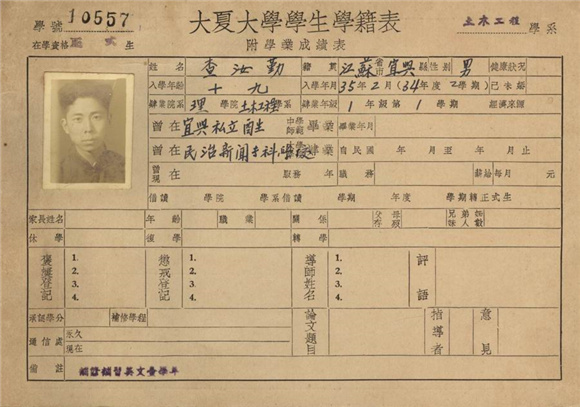 學號 10557 大夏大學學生學籍表 土木工程 學系
在學資格 正式 生 附學業成績表
姓名 查汝勤 籍貫 江蘇 省市 宜興 縣 性別 男 健康狀況
入學年齡 十九 入學年月 35年2月(34年度2學期) 已未婚
肄業院系 理 學院 土木工程 學系 肄業年級 1年級第1學期 經濟來源
曾在 宜興私立 中學師範 畢業 畢業年月
曾在 民治新聞專科 肄業 自民國 年 月至 年 月止
曾現在 服務 年 職務 薪給每月 元
借讀 學院 學系借讀 學期 年度 學期轉正式生
家長姓名 年齡 職業 關係 父母存歿 兄弟姊妹人數
休學 復學 轉學
褒獎登記 1. 2. 3. 4. 懲戒登記 1. 2. 3. 4. 導師姓名 1. 2. 3. 4. 評語
承認學分 補修學程 論文題目 指導者 意見
通信處 永久
現在
備註